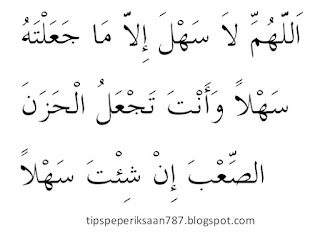 اَللّٰهُمَّ لاَ سَهْلَ إِلاَّ مَا جَعَلْتَهُ
سَهْلاً وَأَنْتَ تَجْعَلُ الْحَزَنَ
الصَّعْبَ إِنْ شِئْتَ سَهْلاً
tipspeperiksaan787.blogspot.com